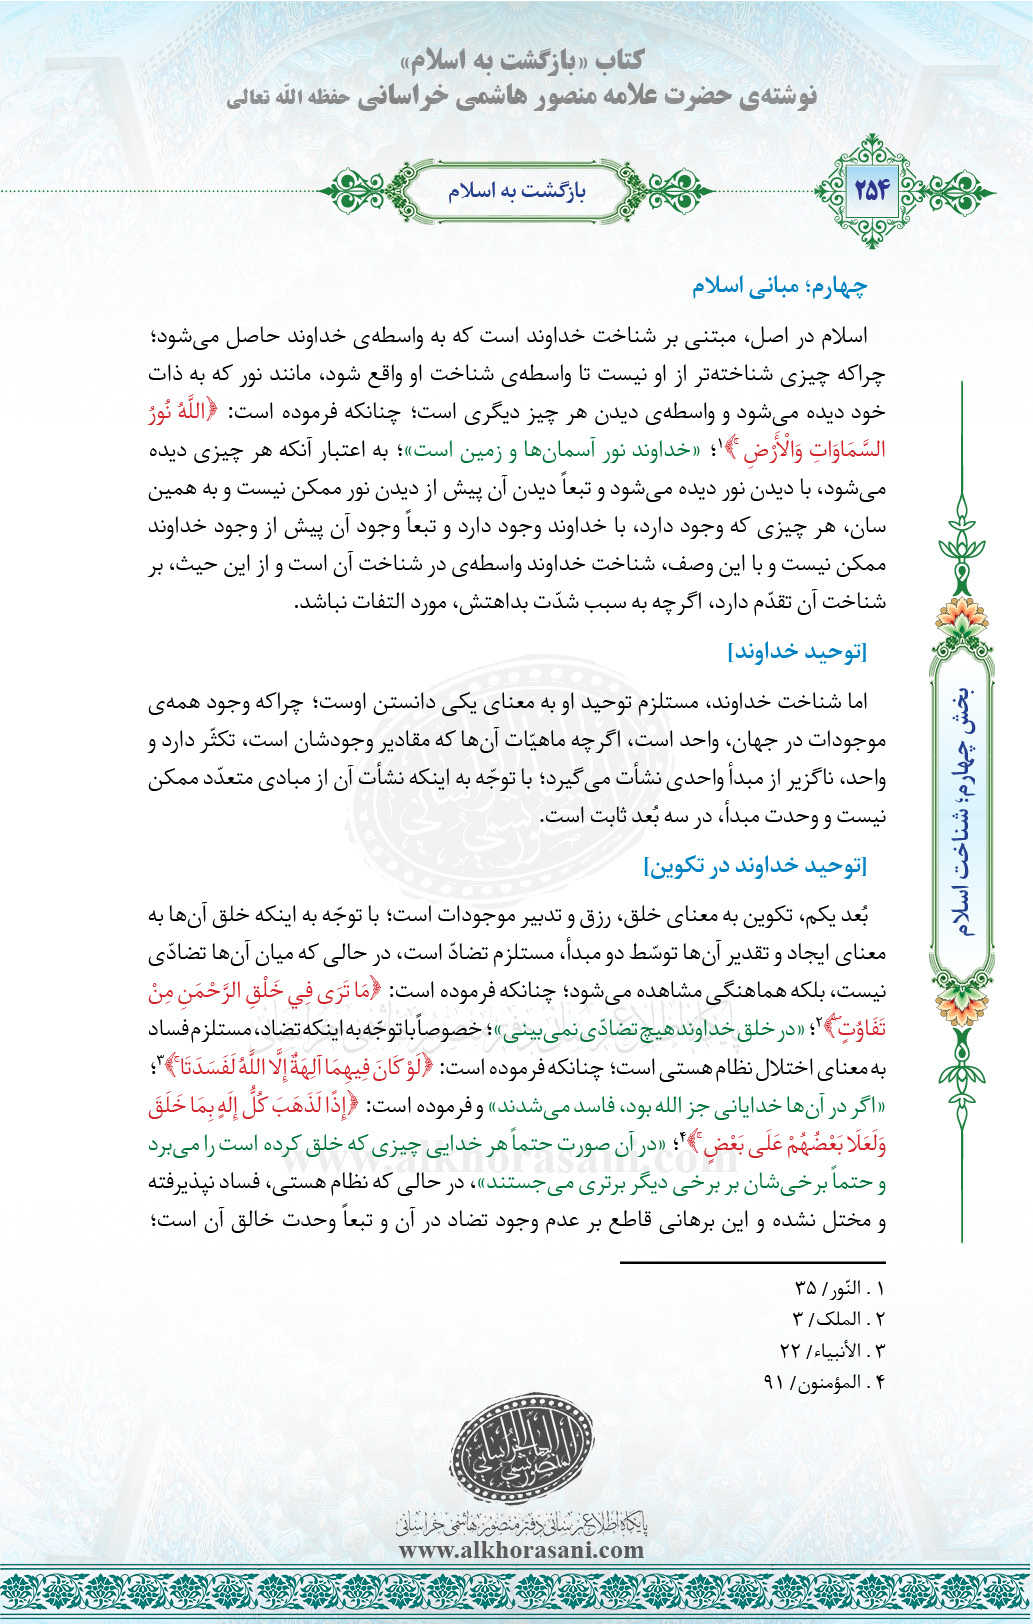 کتاب «بازگشت به اسلام»
نوشته‌ی حضرت علامه منصور هاشمی خراسانی حفظه الله تعالی
۲۵۴
بازگشت به اسلام
چهارم؛ مبانی اسلام
اسلام در اصل، مبتنی بر شناخت خداوند است که به واسطه‌ی خداوند حاصل می‌شود؛
چراکه چیزی شناخته‌تر از او نیست تا واسطه‌ی شناخت او واقع شود، مانند نور که به ذات
خود دیده می‌شود و واسطه‌ی دیدن هر چیز دیگری است؛ چنانکه فرموده است: ﴿اللَّهُ نُورُ
السَّمَاوَاتِ وَالْأَرْضِ ۚ﴾۱؛ «خداوند نور آسمان‌ها و زمین است»؛ به اعتبار آنکه هر چیزی دیده
می‌شود، با دیدن نور دیده می‌شود و تبعاً دیدن آن پیش از دیدن نور ممکن نیست و به همین
سان، هر چیزی که وجود دارد، با خداوند وجود دارد و تبعاً وجود آن پیش از وجود خداوند
ممکن نیست و با این وصف، شناخت خداوند واسطه‌ی در شناخت آن است و از این حیث، بر
شناخت آن تقدّم دارد، اگرچه به سبب شدّت بداهتش، مورد التفات نباشد.
[توحید خداوند]
اما شناخت خداوند، مستلزم توحید او به معنای یکی دانستن اوست؛ چراکه وجود همه‌ی
موجودات در جهان، واحد است، اگرچه ماهیّات آن‌ها که مقادیر وجودشان است، تکثّر دارد و
واحد، ناگزیر از مبدأ واحدی نشأت می‌گیرد؛ با توجّه به اینکه نشأت آن از مبادی متعدّد ممکن
نیست و وحدت مبدأ، در سه بُعد ثابت است.
[توحید خداوند در تکوین]
بُعد یکم، تکوین به معنای خلق، رزق و تدبیر موجودات است؛ با توجّه به اینکه خلق آن‌ها به
معنای ایجاد و تقدیر آن‌ها توسّط دو مبدأ، مستلزم تضادّ است، در حالی که میان آن‌ها تضادّی
نیست، بلکه هماهنگی مشاهده می‌شود؛ چنانکه فرموده است: ﴿مَا تَرَى فِي خَلْقِ الرَّحْمَنِ مِنْ
تَفَاوُتٍ ۖ﴾۲؛ «در خلق خداوند هیچ تضادّی نمی‌بینی»؛ خصوصاً با توجّه به اینکه تضاد، مستلزم فساد
به معنای اختلال نظام هستی است؛ چنانکه فرموده است: ﴿لَوْ كَانَ فِيهِمَا آلِهَةٌ إِلَّا اللَّهُ لَفَسَدَتَا ۚ﴾۳؛
«اگر در آن‌ها خدایانی جز الله بود، فاسد می‌شدند» و فرموده است: ﴿إِذًا لَذَهَبَ كُلُّ إِلَهٍ بِمَا خَلَقَ
وَلَعَلَا بَعْضُهُمْ عَلَى بَعْضٍ ۚ﴾۴؛ «در آن صورت حتماً هر خدایی چیزی که خلق کرده است را می‌برد
و حتماً برخی‌شان بر برخی دیگر برتری می‌جستند»، در حالی که نظام هستی، فساد نپذیرفته
و مختل نشده و این برهانی قاطع بر عدم وجود تضاد در آن و تبعاً وحدت خالق آن است؛
۱ . النّور/ ۳۵
۲ . الملک/ ۳
۳ . الأنبیاء/ ۲۲
۴ . المؤمنون/ ۹۱
بخش چهارم؛ شناخت اسلام
پایگاه اطلاع‌رسانی دفتر منصور هاشمی خراسانی
www.alkhorasani.com